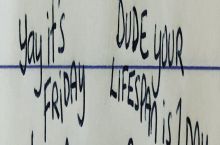 Yay it's
FRIDAY
DUDE YOUR
LIFESPAN is 1 DAY